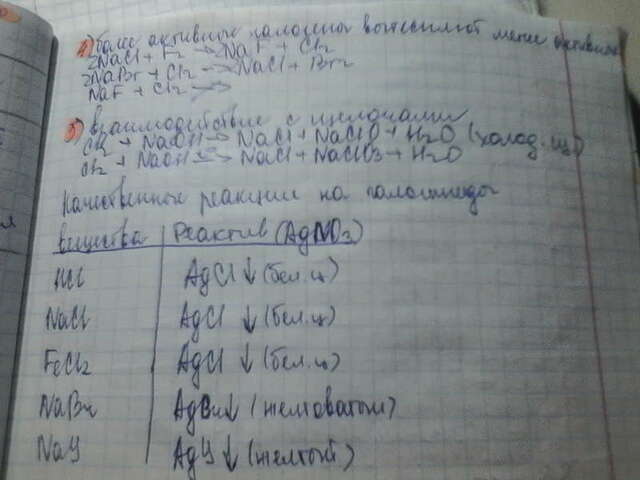 4) более активные галогены вытесняют менее активные
2NaCl + F2 → NaF + Cl2
2NaBr + Cl2 → NaCl + Br2
NaF + Cl2 →
5) взаимодействие с щелочами
Cl2 + NaOH → NaCl + NaClO + H2O (холод. щ)
Cl2 + NaOH → NaCl + NaClO3 + H2O
Качественные реакции на галогениды
вещества Реактив (AgNO3)
HCl AgCl ↓ (бел. ц)
NaCl AgCl ↓ (бел. ц)
FeCl2 AgCl ↓ (бел. ц)
NaBr AgBr ↓ (желтоватый)
NaY AgY ↓ (желтый)